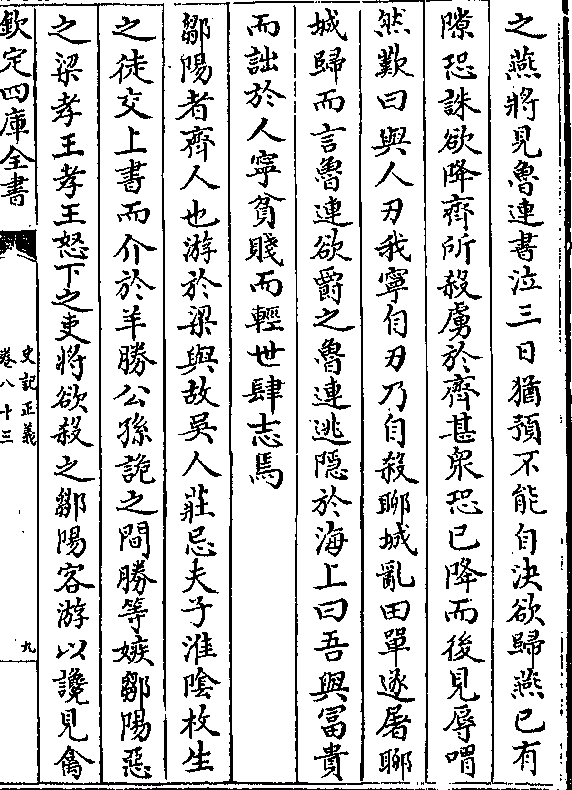 之燕將見魯連書泣三日猶預不能自決欲歸燕已有
隙恐誅欲降齊所殺虜於齊甚衆恐已降而後見辱喟
然歎曰與人刃我寧自刃乃自殺聊城亂田單遂屠聊
城歸而言魯連欲爵之魯連逃隱於海上曰吾與富貴
而詘於人寧貧賤而輕世肆志焉
鄒陽者齊人也游於梁與故吳人莊忌夫子淮隂枚生
之徒交上書而介於羊勝公孫詭之間勝等嫉鄒陽惡
之梁孝王孝王怒下之吏將欲殺之鄒陽客游以讒見禽
欽定四庫全書
史記正義
卷八十三
九